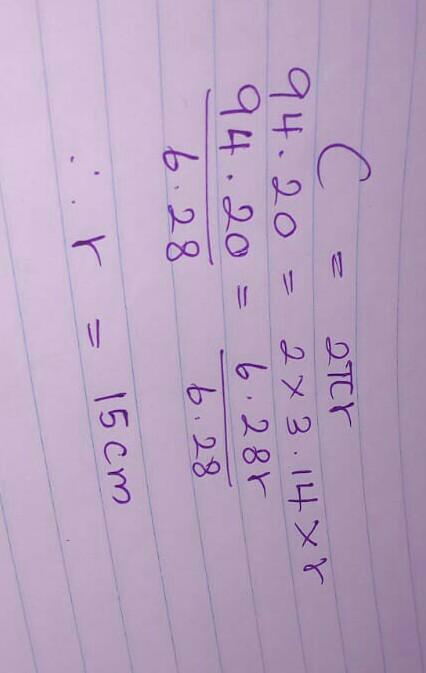 C = 2πr
94.20 = 2×3.14×r
94.20 = 6.28r
6.28 6.28
∴ r = 15cm